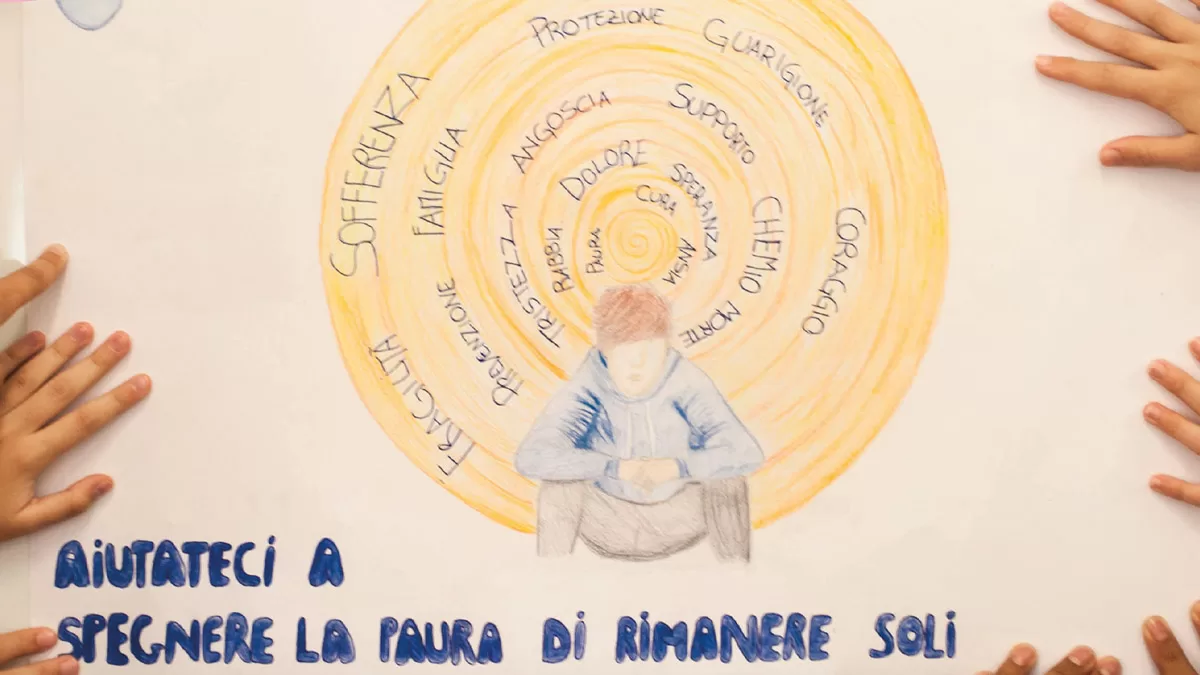 PROTEZIONE
GUARIGIONE
SOFFERENZA
FAMIGLIA
ANGOSCIA
SUPPORTO
DOLORE
SPERANZA
CURA
PAURA
ANSIA
RABBIA
TRISTEZZA
CHEMIO
MORTE
CORAGGIO
PREVENZIONE
FRAGILITÀ
AIUTATECI A
SPEGNERE LA PAURA DI RIMANERE SOLI